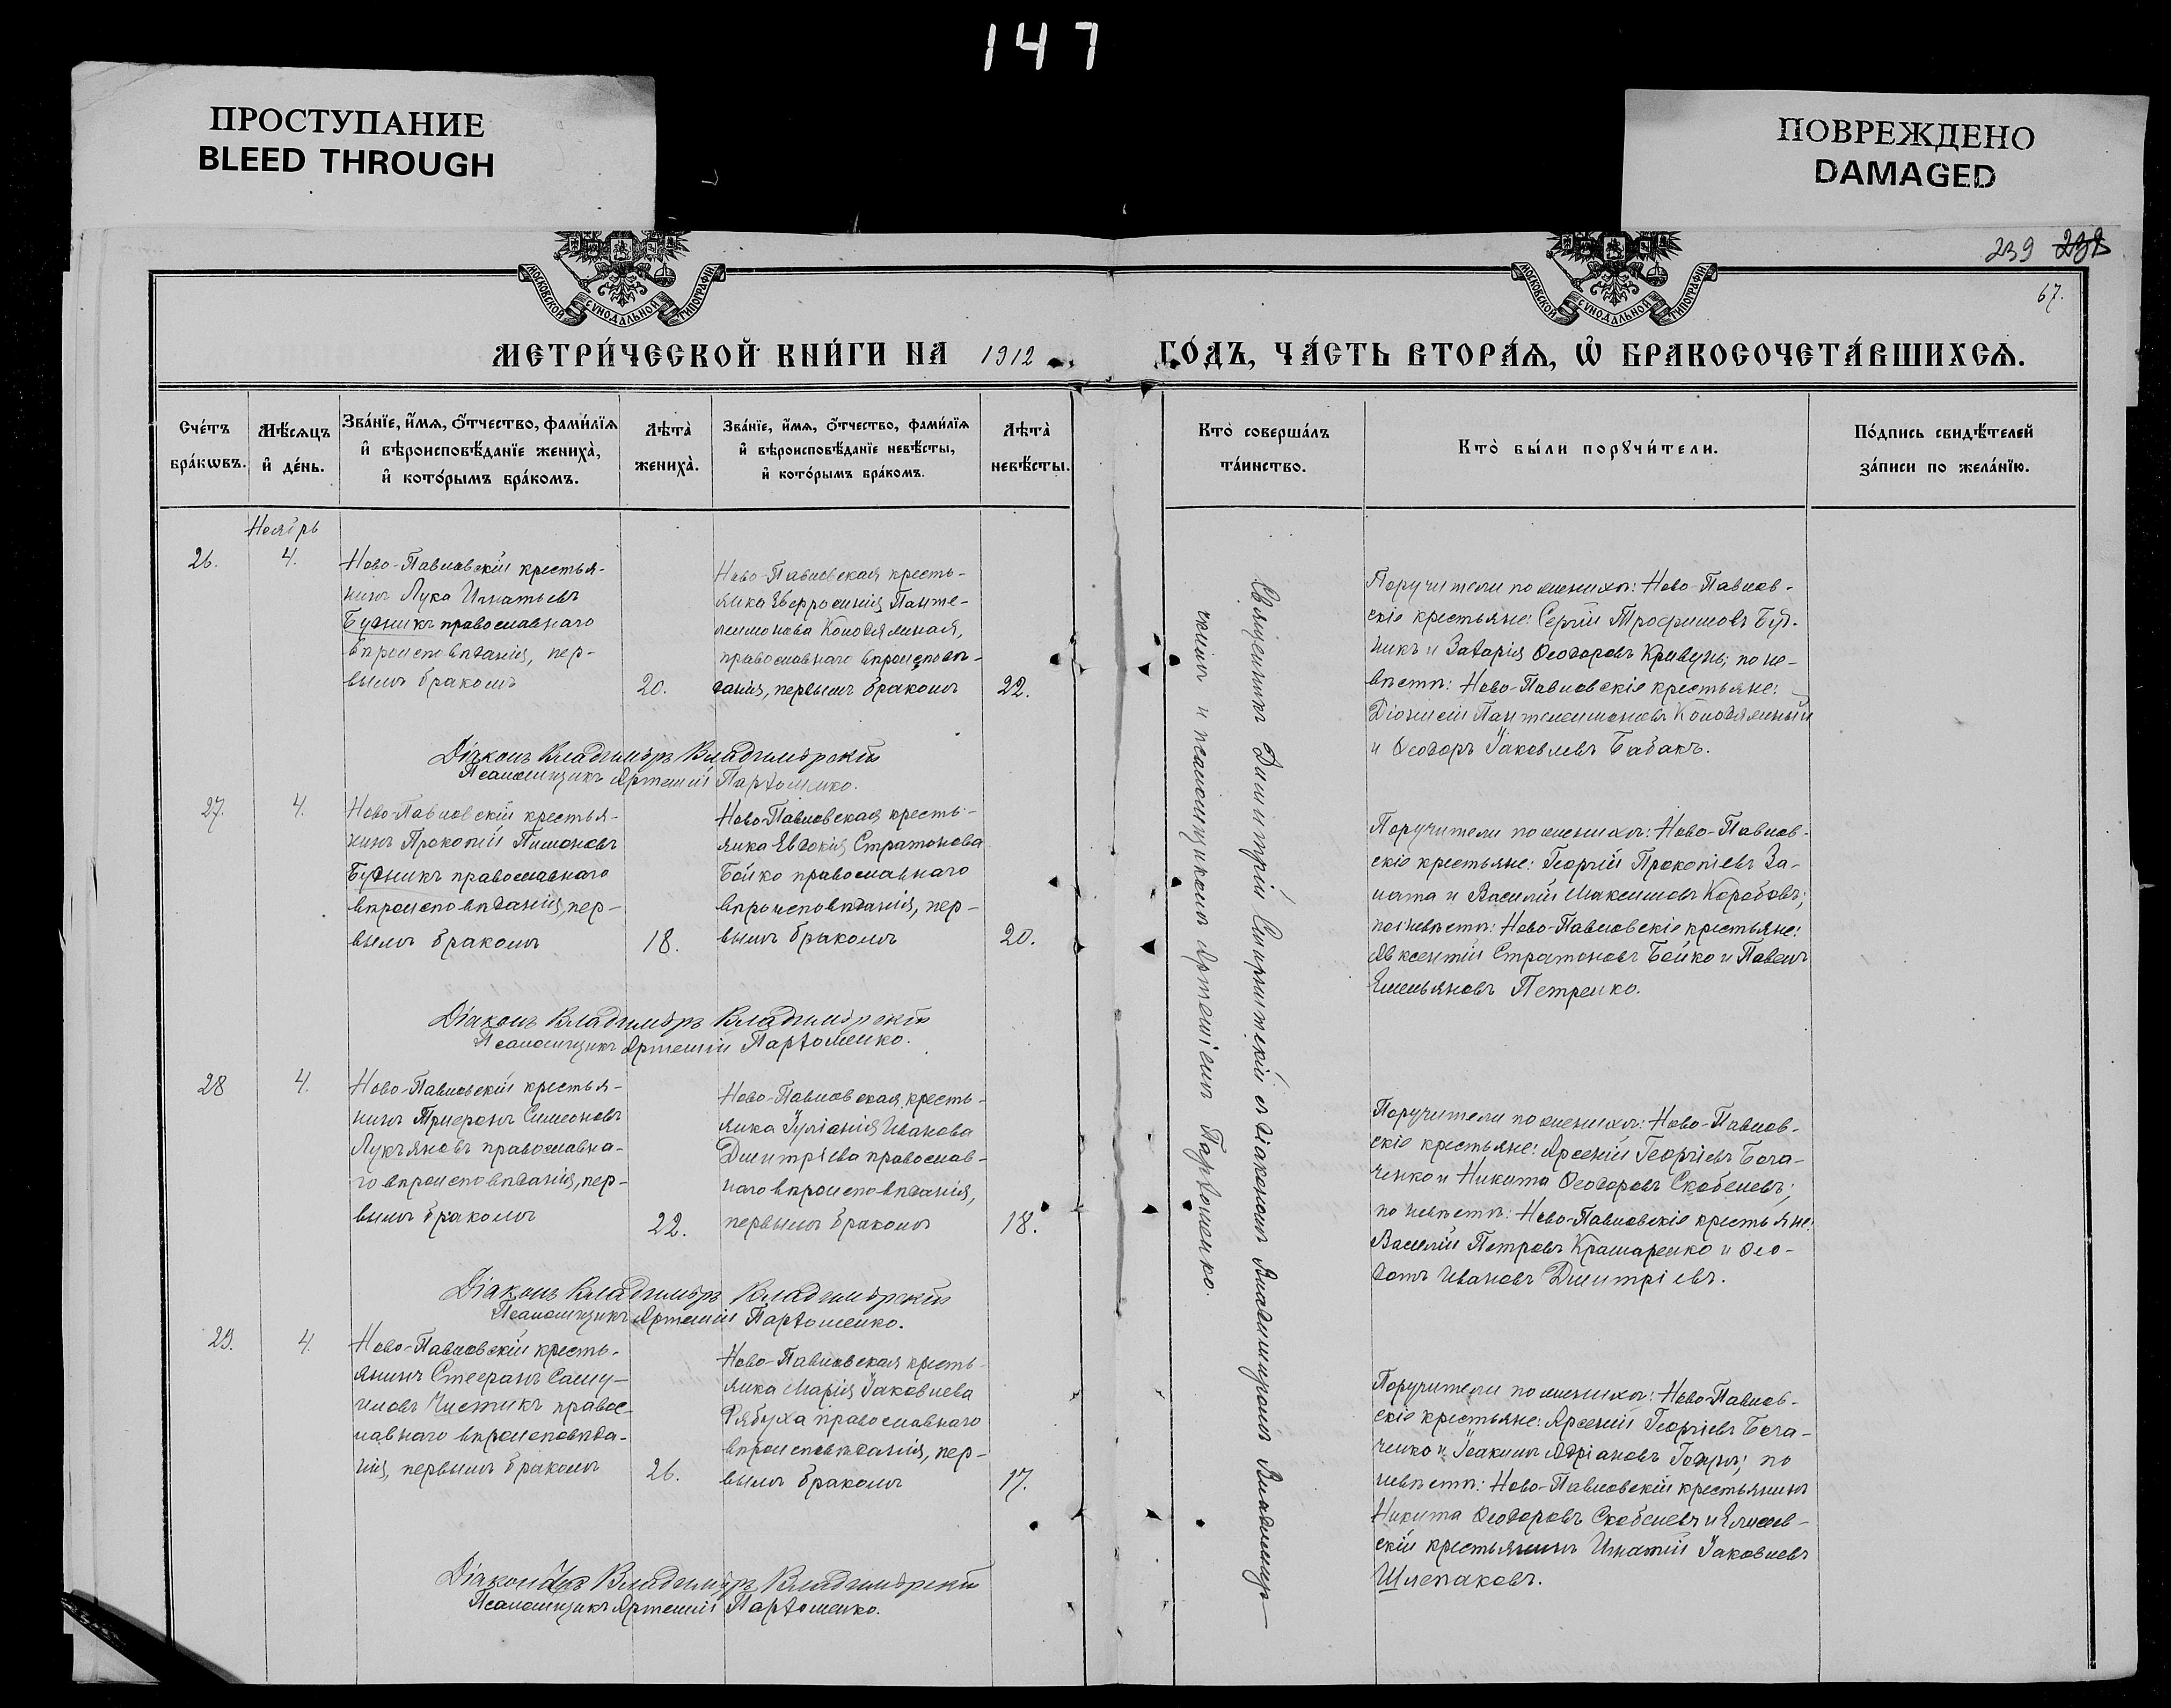 147
ПРОСТУПАНИЕ
BLEED THROUGH
ПОВРЕЖДЕНО
DAMAGED
МОСКОВСКОЙ СѴНОДАЛЬНОЙ ТИПОГРАФІИ
МОСКОВСКОЙ СѴНОДАЛЬНОЙ ТИПОГРАФІИ
239 238
67.
МЕТРИ́ЧЕСКОЙ КНИ́ГИ НА 1912 ГО́ДЪ, ЧА́СТЬ ВТОРА́Ѧ, Ѽ БРАКОСОЧЕТА́ВШИХСѦ.
Сче́тъ
бра́кѡвъ.
Мѣ́сѧцъ
и҆ де́нь.
Зва́нїе, и҆́мѧ, ѻ҆́тчество, фами́лїѧ
и҆ вѣроисповѣ́данїе жениха̀,
и҆ кото́рымъ бра́комъ.
Лѣта̀
жениха̀.
Зва́нїе, и҆́мѧ, ѻ҆́тчество, фами́лїѧ
и҆ вѣроисповѣ́данїе невѣ́сты,
и҆ кото́рымъ бра́комъ.
Лѣта̀
невѣ́сты.
Кто̀ соверша́лъ
та́инство.
Кто̀ бы́ли порꙋчи́тели.
По́дпись свидѣ́телей
за́писи по жела́нїю.
Ноябрь
26.
4.
Ново-Павловскій крестья-
нинъ Лука Игнатьевъ
Будникъ православнаго
вѣроисповѣданія, пер-
вымъ бракомъ
20.
Ново-Павловская кресть-
янка Евфросинія Панте-
леимонова Колодяжная,
православнаго вѣроисповѣ-
данія, первымъ бракомъ
22.
Поручители по женихѣ: Ново-Павлов-
скіе крестьяне: Сергій Трофимовъ Буд-
никъ и Захарія Ѳеодоровъ Кривунь; по не-
вѣстѣ: Ново-Павловскіе крестьяне:
Діонисій Пантелеимоновъ Колодяжный
и Ѳеодоръ Іаковлевъ Бабакъ.
Діаконъ Владиміръ Владимірскій
Псаломщикъ Артемій Пархоменко.
27.
4.
Ново-Павловскій крестья-
нинъ Прокопій Пимоновъ
Будникъ православнаго
вѣроисповѣданія, пер-
вымъ бракомъ
18.
Ново-Павловская кресть-
янка Евдокія Стратонова
Бойко православнаго
вѣроисповѣданія, пер-
вымъ бракомъ
20.
Поручители по женихѣ: Ново-Павлов-
скіе крестьяне: Георгій Прокопіевъ За-
лата и Василій Максимовъ Коробовъ;
по невѣстѣ: Ново-Павловскіе крестьяне:
Авксентій Стратоновъ Бойко и Павелъ
Емельяновъ Петренко.
Діаконъ Владиміръ Владимірскій
Псаломщикъ Артемій Пархоменко.
28
4.
Ново-Павловскій крестья-
нинъ Трифонъ Симеоновъ
Лукъяновъ православна-
го вѣроисповѣданія, пер-
вымъ бракомъ
22.
Ново-Павловская кресть-
янка Іуліанія Иванова
Дмитріева православ-
наго вѣроисповѣданія,
первымъ бракомъ
18.
Поручители по женихѣ: Ново-Павлов-
скіе крестьяне: Арсеній Георгіевъ Бога-
ченко и Никита Ѳеодоровъ Скобелевъ;
по невѣстѣ: Ново-Павловскіе крестьяне:
Василій Петровъ Крамаренко и Ѳео-
дотъ Ивановъ Дмитріевъ.
Діаконъ Владиміръ Владимірскій
Псаломщикъ Артемій Пархоменко.
29.
4.
Ново-Павловскій кресть-
янинъ Стефанъ Саму-
иловъ Чистикъ правос-
лавнаго вѣроисповѣда-
нія, первымъ бракомъ
26.
Ново-Павловская кресть-
янка Марія Іаковлева
Рябуха православнаго
вѣроисповѣданія, пер-
вымъ бракомъ
17.
Поручители по женихѣ: Ново-Павлов-
скіе крестьяне: Арсеній Георгіевъ Бога-
ченко и Іоакимъ Адріановъ по
невѣстѣ: Ново-Павловскій крестьянинъ
Никита Ѳеодоровъ Скобелевъ и
скій крестьянинъ Игнатій Іаковлевъ
Шлепаковъ.
Діаконъ Владиміръ Владимірскій
Псаломщикъ Артемій Пархоменко.
Священникъ Димитрій съ діакономъ Владимиромъ Владимир-
скимъ и псаломщикомъ Артеміемъ Пархоменко.